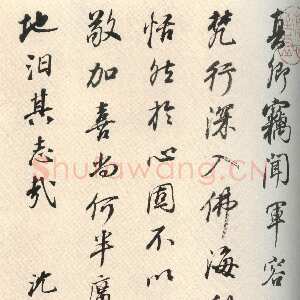 真卿竊聞軍容
梵行深入佛海
恬然於心固不以
敬加喜尚何半席
地汨其志哉 沈
Shufawang.CN